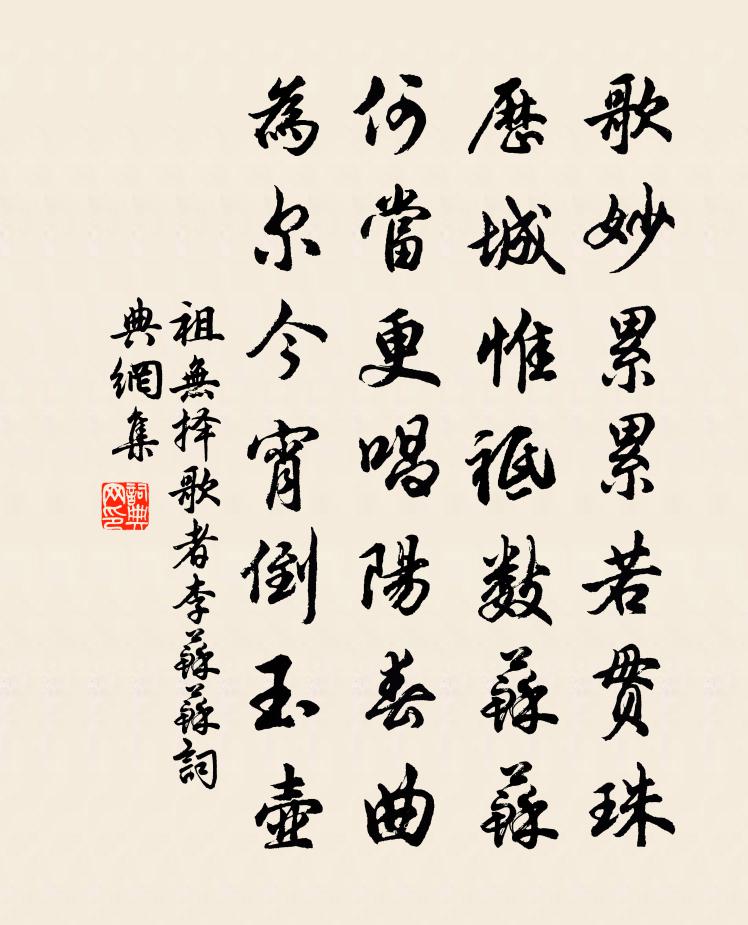 歌妙累累若貫珠
歷城惟祗數蘇蘇
何當更唱陽春曲
為尔今宵倒玉壺
祖無择歌者李蘇蘇詞
典網集
詞典
网印